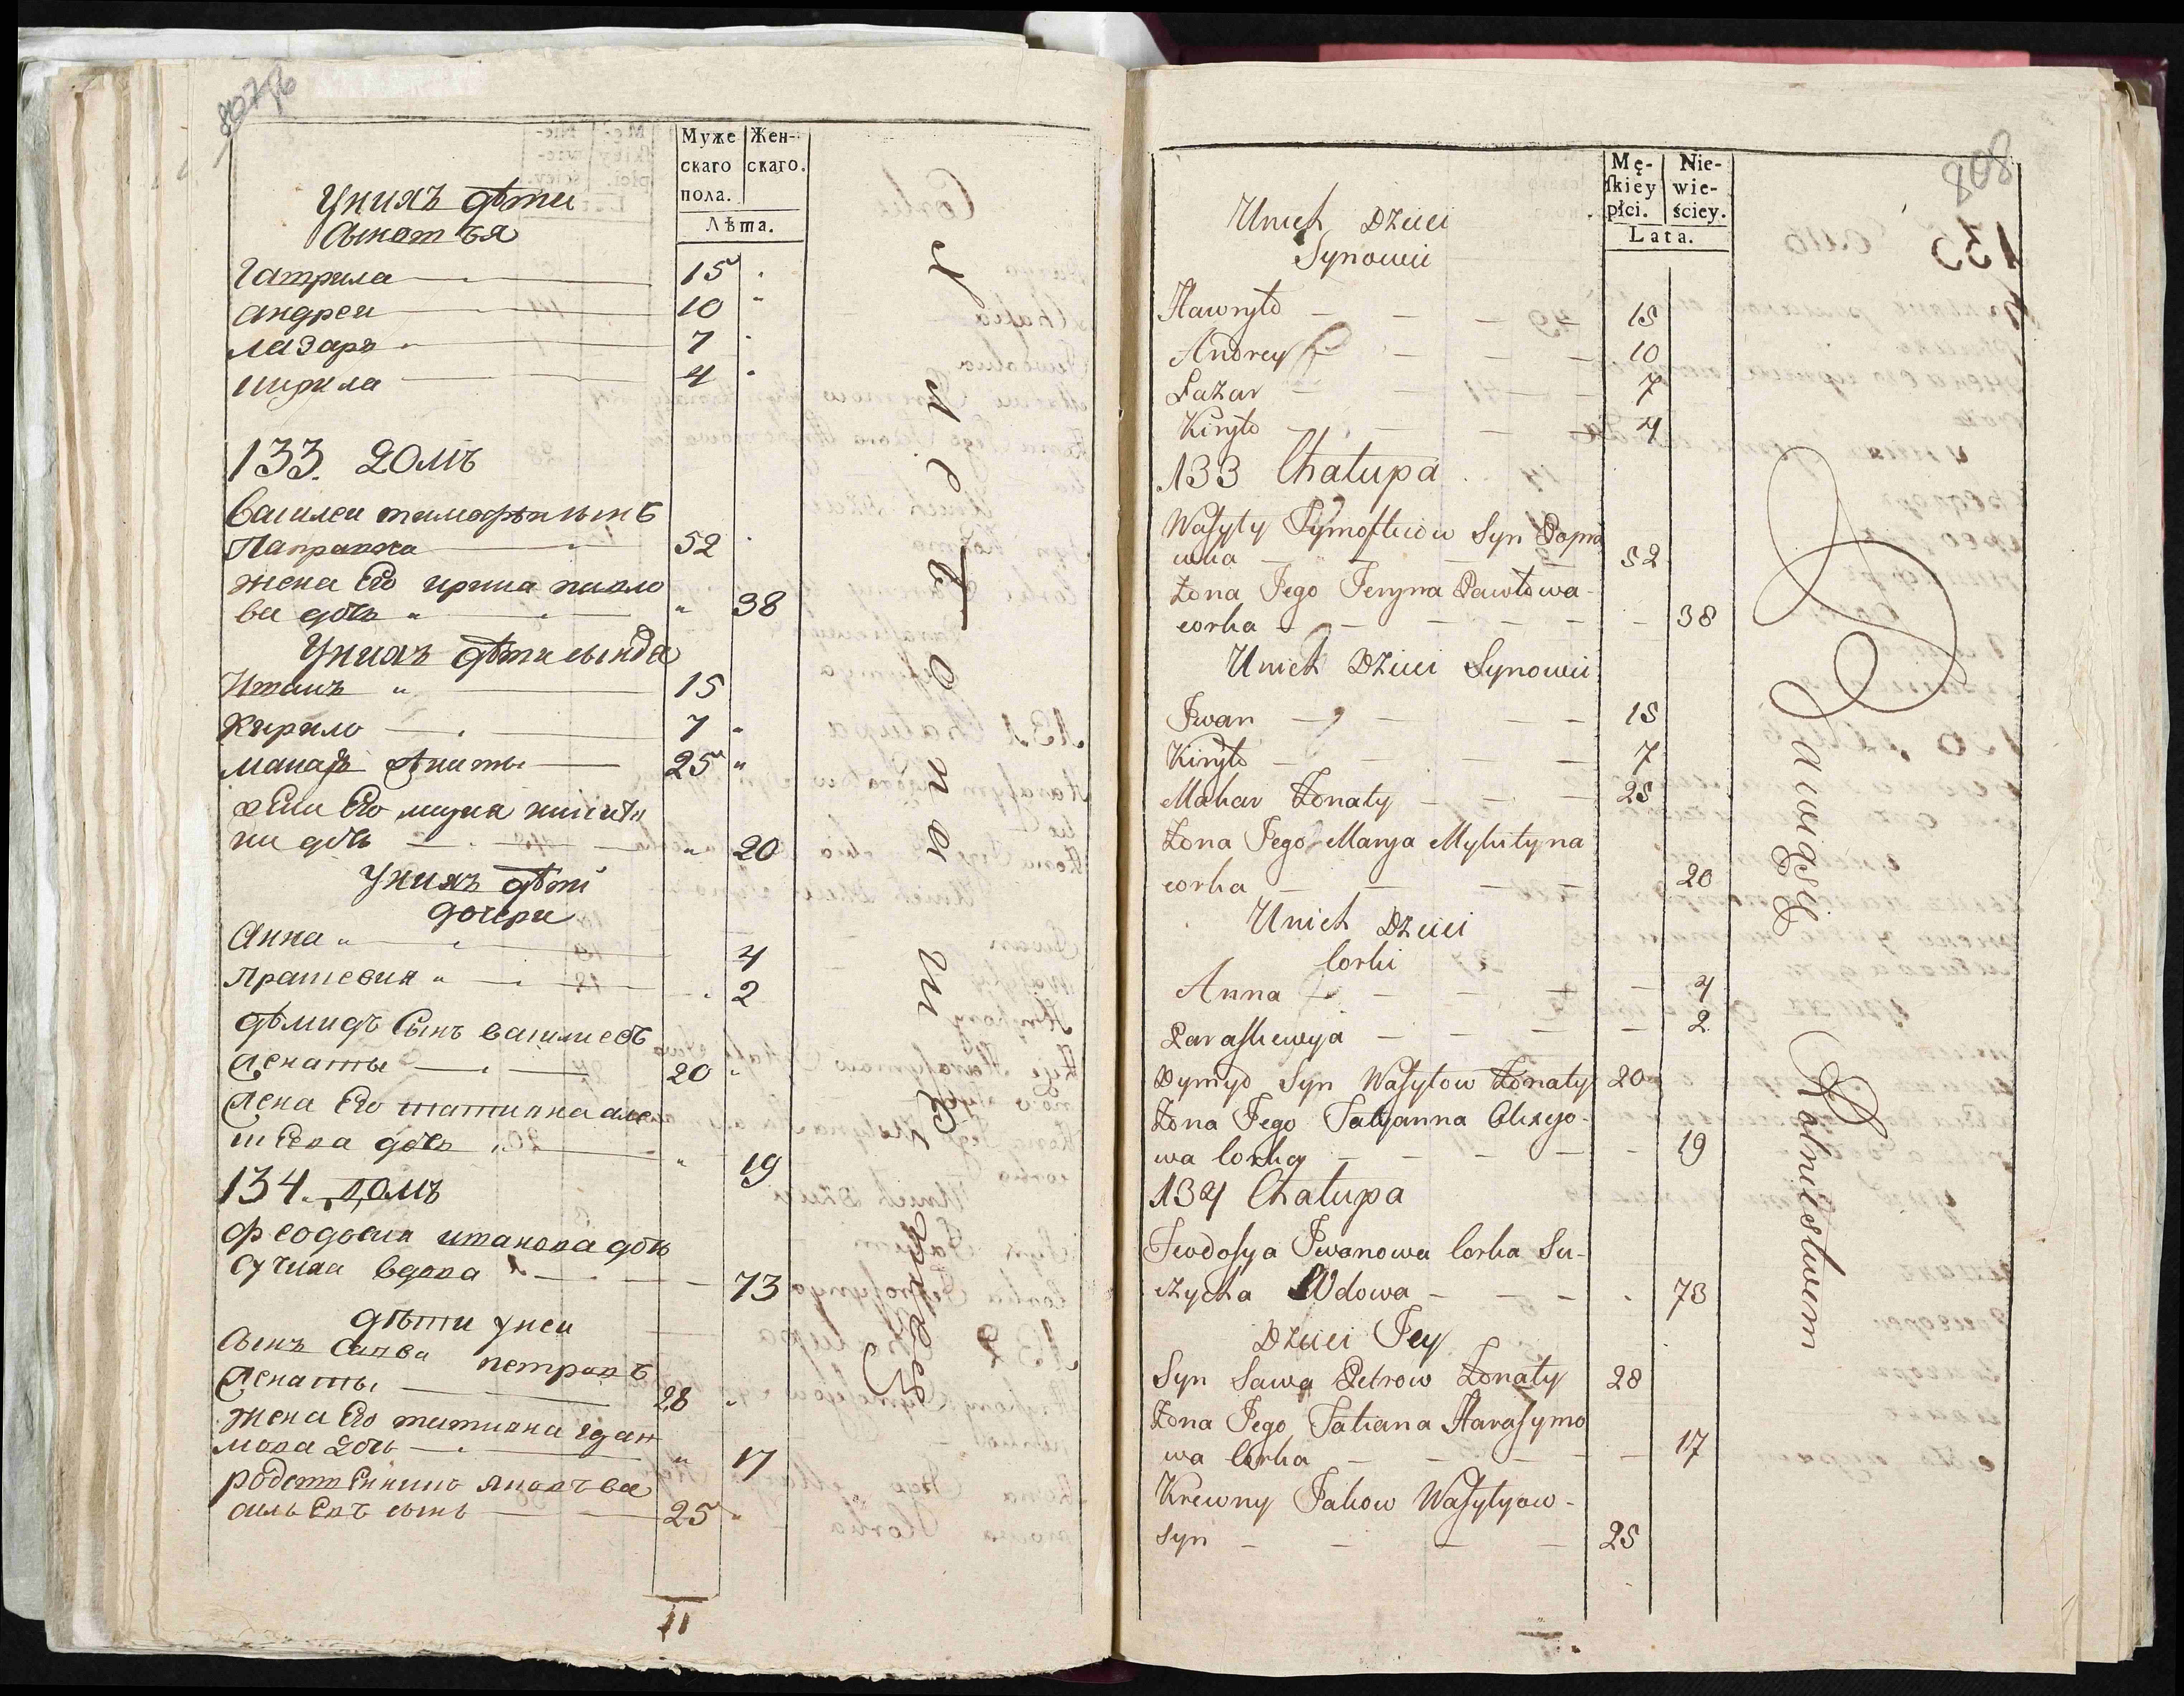 Муже
скаго
пола.
Жен-
скаго.
Лѣта.
Унихъ дѣти
Сыновъя
Гаврила 15
Андреи 10
Лазаръ 7
Кирила 4
133. домъ
Василеи
52
жена Его ирина павло
ва дочь 38
Унихъ дѣти
Иванъ 15
Кирило 7
Макаръ женаты 25
Его
на дочь 20
Унихъ дѣти
дочери
Анна 4
Прасковия 2
Демидъ Сынъ василиевъ
женаты 20
жена Его татиана алек
сѣева дочь 19
134. домъ
Феодосия иванова дочь
вдова 73
дѣти унеи
Сынъ Савва петровъ
женаты 28
жена Его татиана
мова дочь 17
Яковъ ва
сильевъ сынъ 25
11
808
Mę-
ſkiey
płci.
Nie-
wie-
ściey.
Lata.
Unich Dzieci
Synowie
Hawryło 15
Andrey 10
Łazar 7
Kiryło 4
133 Chałupa
Waſyly Tymoſkiow Syn Papra
wka 52
Żona Jego Jeryna Pawłowa
corka 38
Unich Dzieci Synowie
Jwan 15
Kiryło 7
Makar Żonaty 25
Żona Jego Marya Mykityna
corka 20
Unich Dzieci
Corki
Anna 4
Paraſkiewya 2
Dymyd Syn Waſylow Żonaty 20
Żona Jego Tatyanna Olexyo-
wa Corka 19
134 Chałupa
Feodoſya Jwanowa Corka Su-
czycha Wdowa 73
Dzieci Jey
Syn Sawa Petrow Żonaty 28
Żona Jego Tatiana Haraſymo
wa Corka 17
Krewny Jakow Waſylyow-
syn 25
Rolnictwem